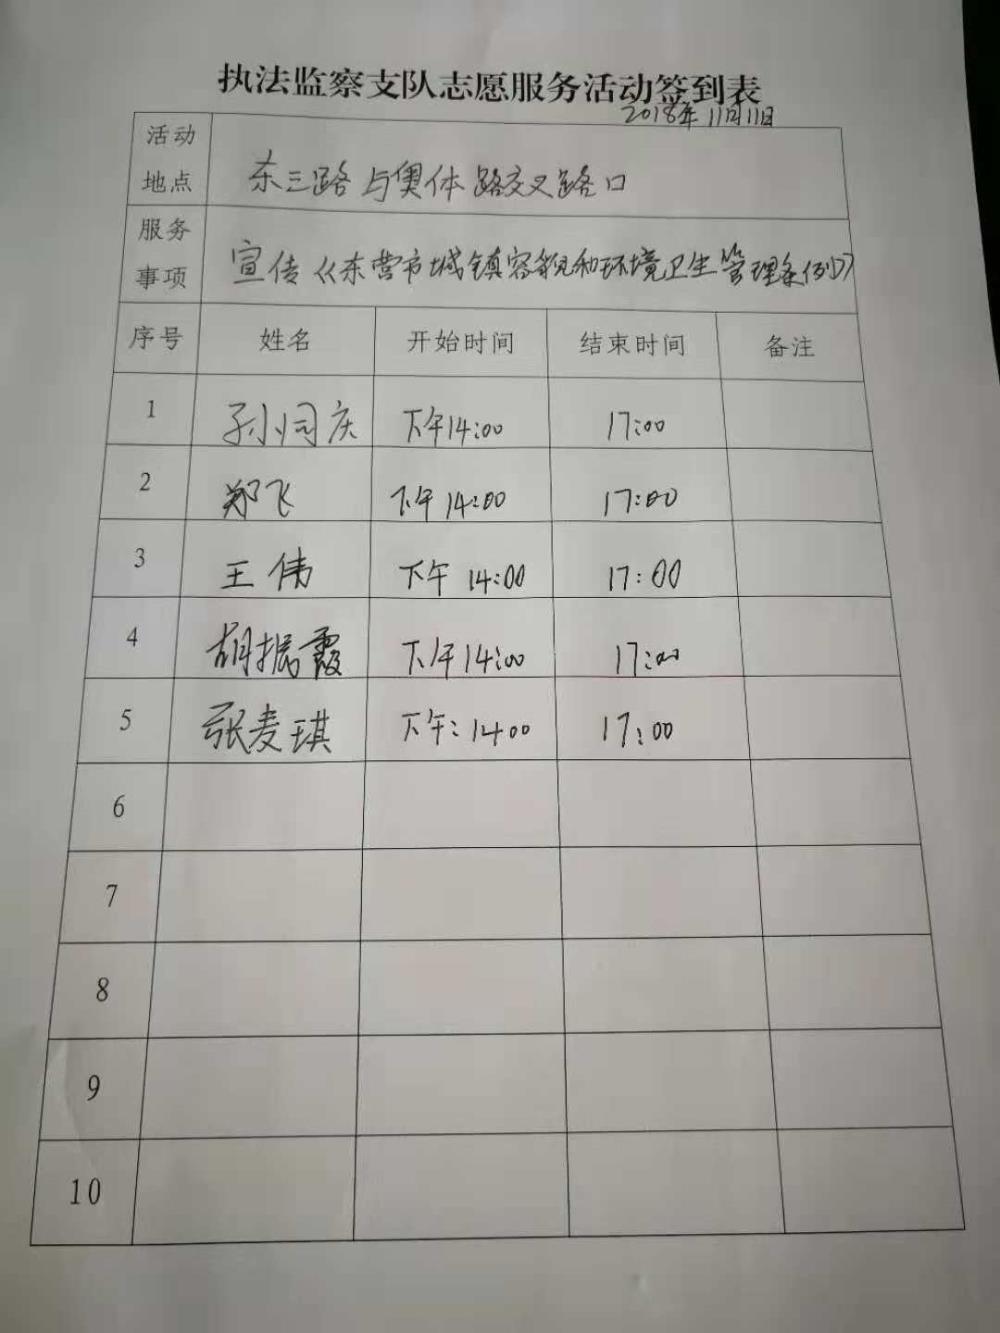 执法监察支队志愿服务活动签到表
2018年11月11日
活动地点 东三路与奥体路交叉路口
服务事项 宣传《东营市城镇容貌和环境卫生管理条例》
序号 姓名 开始时间 结束时间 备注
1 孙同庆 下午14:00 17:00
2 郑飞 下午14:00 17:00
3 王伟 下午 14:00 17:00
4 胡振霞 下午14:00 17:00
5 张麦琪 下午:1400 17:00
6
7
8
9
10